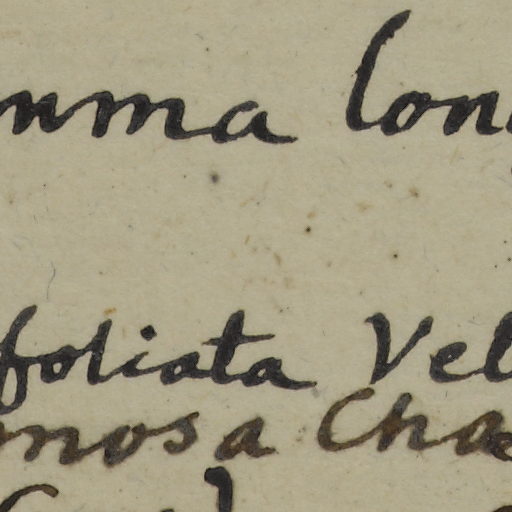 numa lon
foliata Vel
nosa Cha